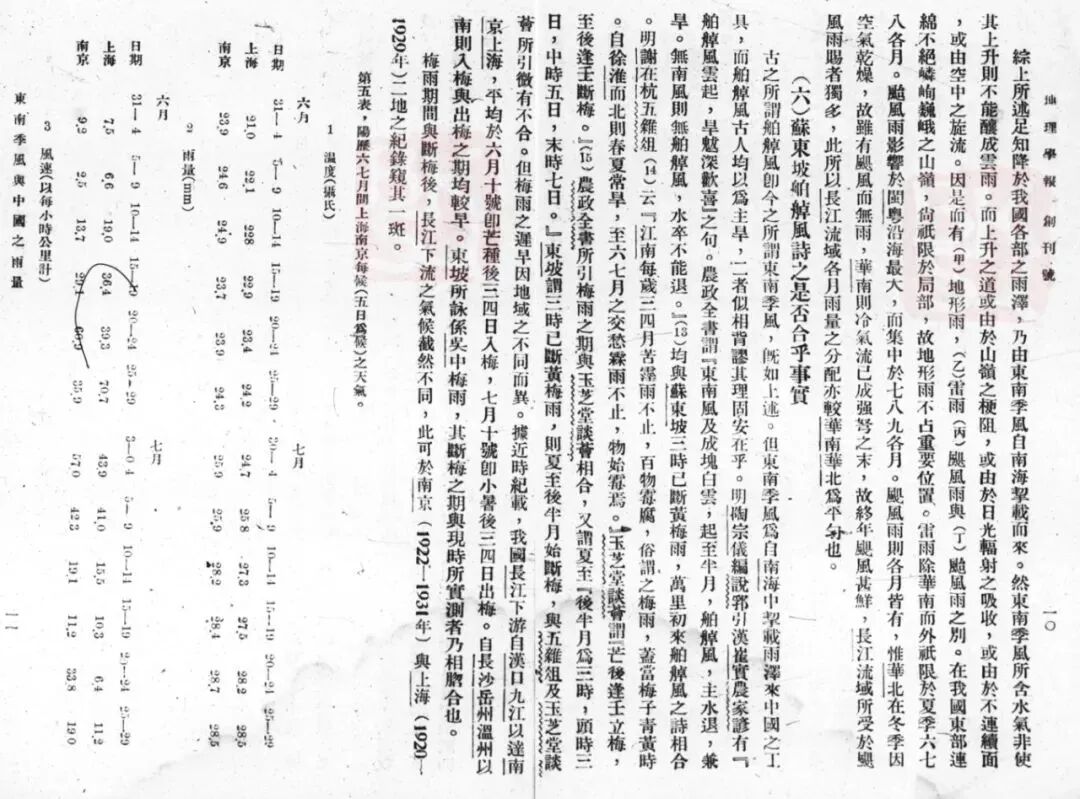 地理學報 創刊號 一〇
綜上所述足知降於我國各部之雨澤，乃由東南季風自南海挈載而來。然東南季風所含水氣非使
其上升則不能釀成雲雨。而上升之道或由於山嶺之梗阻，或由於日光輻射之吸收，或由於不連續面
，或由空中之旋流。因是而有(甲)地形雨，(乙)雷雨(丙)颶風雨與(丁)颱風雨之別。在我國東部連
綿不絕嶙峋巍峨之山嶺，尙祇限於局部，故地形雨不占重要位置。雷雨除華南而外祇限於夏季六七
八各月。颱風雨影響於閩粵沿海最大，而集中於七八九各月。颶風雨則各月皆有，惟華北在冬季因
空氣乾燥，故雖有颶風而無雨，華南則冷氣流已成强弩之末，故終年颶風甚鮮，長江流域所受於颶
風雨賜者獨多，此所以長江流域各月雨量之分配亦較華南華北爲平匀也。
(六)蘇東坡舶䑲風詩之是否合乎事實
古之所謂舶䑲風卽今之所謂東南季風，旣如上述。但東南季風爲自南海中挈載雨澤來中國之工
具，而舶䑲風古人均以爲主旱，二者似相背謬其理固安在乎。明陶宗儀編說郛引漢崔實農家諺有『
舶䑲風雲起，旱魃深歡喜』之句。農政全書謂『東南風及成塊白雲，起至半月，舶䑲風，主水退，兼
旱。無南風則無舶䑲風，水卒不能退。』(13)均與蘇東坡三時已斷黃梅雨，萬里初來舶䑲風之詩相合
。明謝在杭五雜俎(14)云『江南每歲三四月苦霪雨不止，百物霉腐，俗謂之梅雨，蓋當梅子靑黃時
。自徐淮而北則春夏常旱，至六七月之交愁霖雨不止，物始霉焉。』玉芝堂談薈謂『芒後逢壬立梅，
至後逢壬斷梅。』(15)農政全書所引梅雨之期與玉芝堂談薈相合，又謂夏至『後半月爲三時，頭時三
日，中時五日，末時七日。』東坡謂三時已斷黃梅雨，則夏至後半月始斷梅，與五雜俎及玉芝堂談
薈所引微有不合。但梅雨之遲早因地域之不同而異。據近時紀載，我國長江下游自漢口九江以達南
京上海，平均於六月十號卽芒種後三四日入梅，七月十號卽小暑後三四日出梅。自長沙岳州溫州以
南則入梅與出梅之期均較早。東坡所詠係吳中梅雨，其斷梅之期與現時所實測者乃相脗合也。
梅雨期間與斷梅後，長江下流之氣候截然不同，此可於南京(1922—1931年)與上海(1920—
1929年)二地之紀錄窺其一斑。
第五表，陽歷六七月間上海南京每候(五日爲候)之天氣。
1 温度(攝氏)
六月 七月
日期 31—4 5—9 10—14 15—19 20—24 25—29 30—4 5—9 10—14 15—19 20—24 25—29
上海 21.0 22.1 228 22.9 23.4 24.2 24.7 25.8 27.3 27.5 28.2 28.5
南京 23.9 24.6 24.9 23.7 23.9 24.3 25.9 25.9 28.2 28.4 28.7 28.5
2 雨量(mm)
六月 七月
日期 31—4 5—9 10—14 15—19 20—24 25—29 3-0-4 5—9 10—14 15—19 20—24 25—29
上海 7.5 6.6 19.0 36.4 39.3 70.7 43.9 41.0 15.5 10.3 6.4 11.2
南京 9.2 2.5 13.7 29.1 66.9 35.9 57.0 42.3 19.1 11.2 33.8 19.0
3 風速(以每小時公里計)
東南季風與中國之雨量 一一